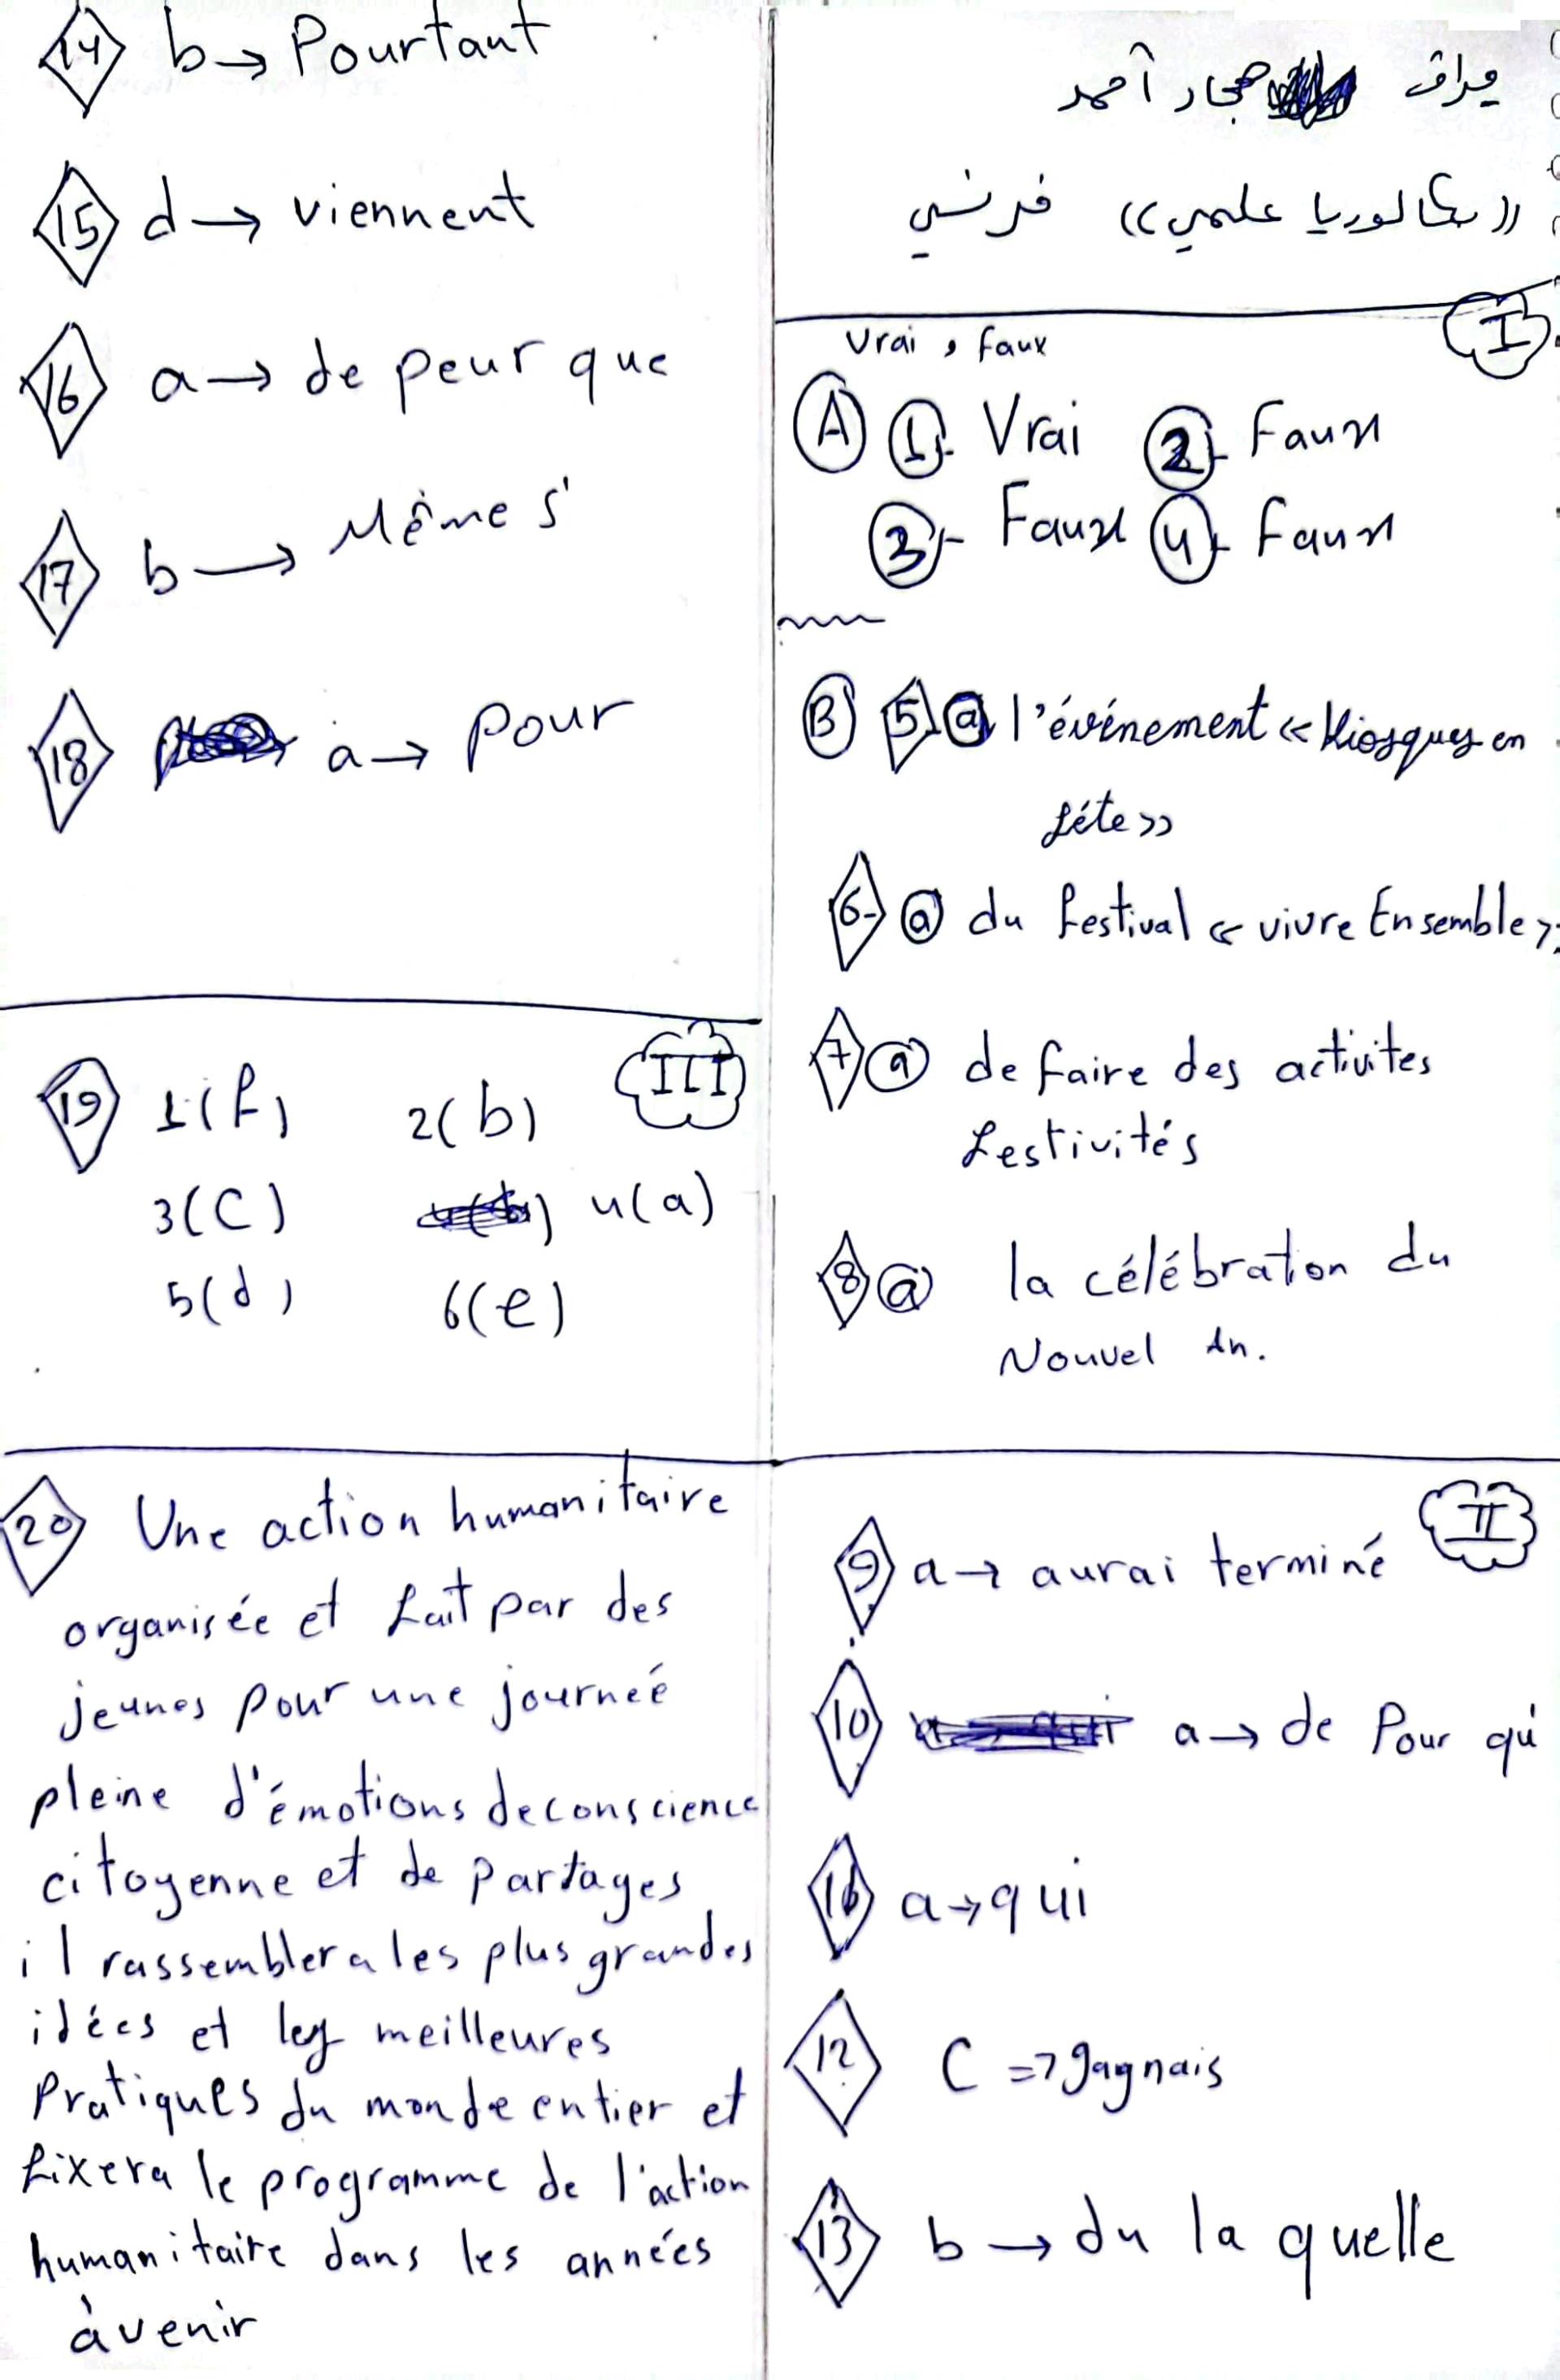 فراق حجار أحمد
((بكالوريا علمي)) فرنسي
I
Vrai , faux
A 1- Vrai 2- Faux
3- Faux 4- Faux
B 5- a l'événement «Kiosques en
fête»
6- a du festival «vivre Ensemble»
7 a de faire des activites
festivités
8 a la célébration du
Nouvel An.
II
9 a → aurai terminé
10 a → de Pour qui
a → qui
12 C => gagnais
13 b → du la quelle
14 b → Pourtant
15 d → viennent
16 a → de peur que
17 b → Même s'
18 a → pour
III
19 1(f) 2(b)
3(C) 4(a)
5(d) 6(e)
20 Une action humanitaire
organisée et fait par des
jeunes pour une journeé
pleine d'émotions de conscience
citoyenne et de partages
il rassemblera les plus grandes
idées et les meilleures
Pratiques du monde entier et
fixera le programme de l'action
humanitaire dans les années
àvenir